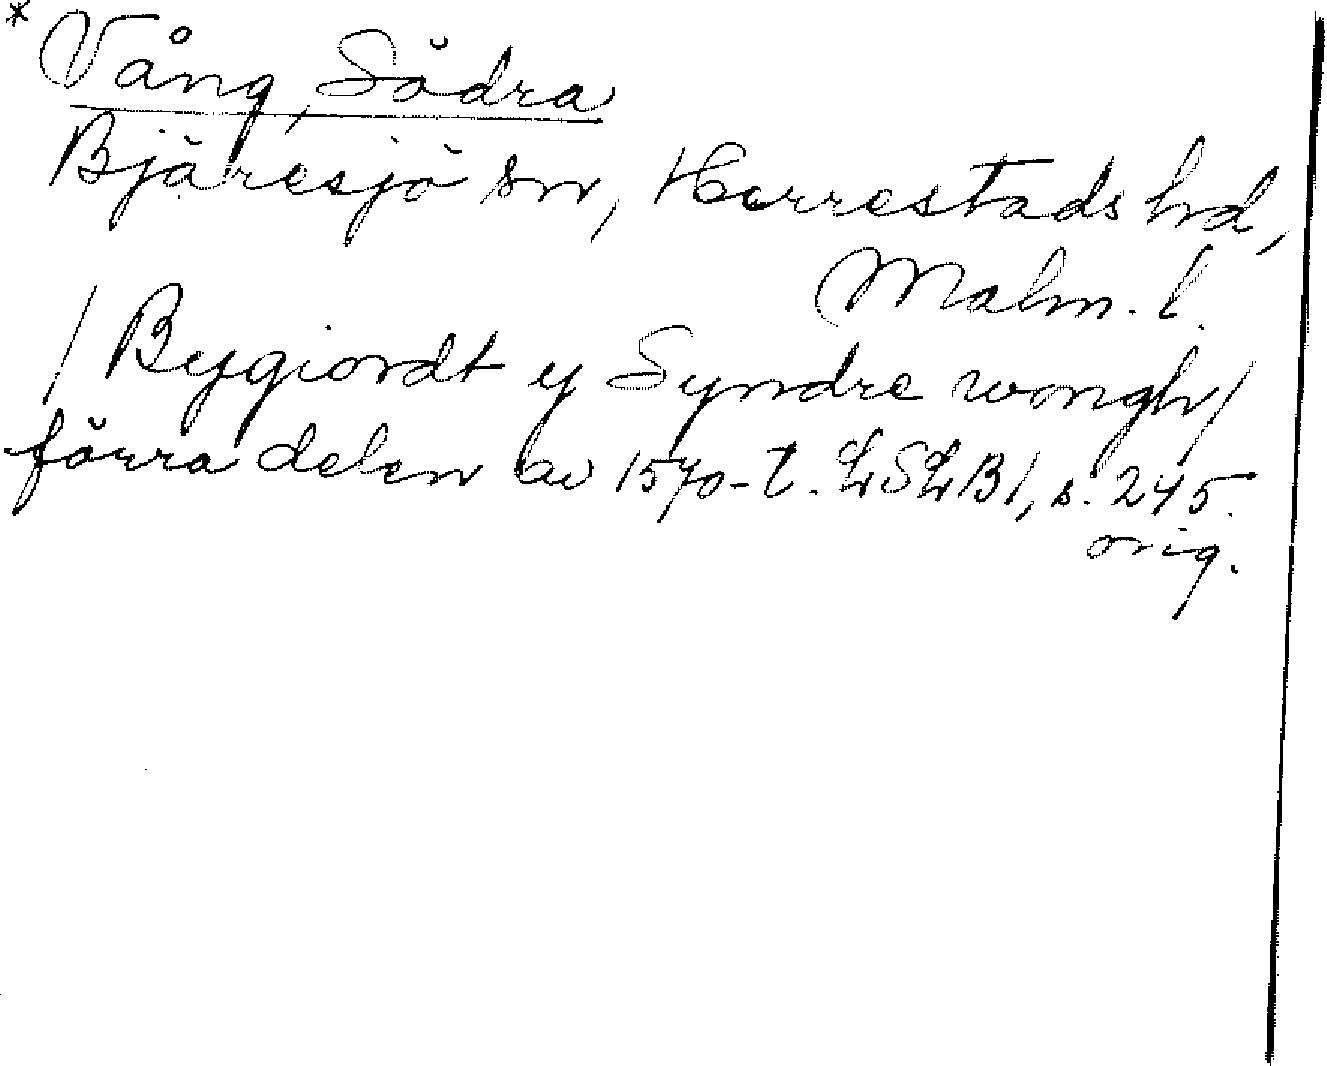 * Vång, Södra
Bjäresjö sn, Herrestads hd,
Malm. l.
/ Bygiordt y Syndre wongh /
förra delen av 1570-t. LSLB 1, s. 245.
orig.